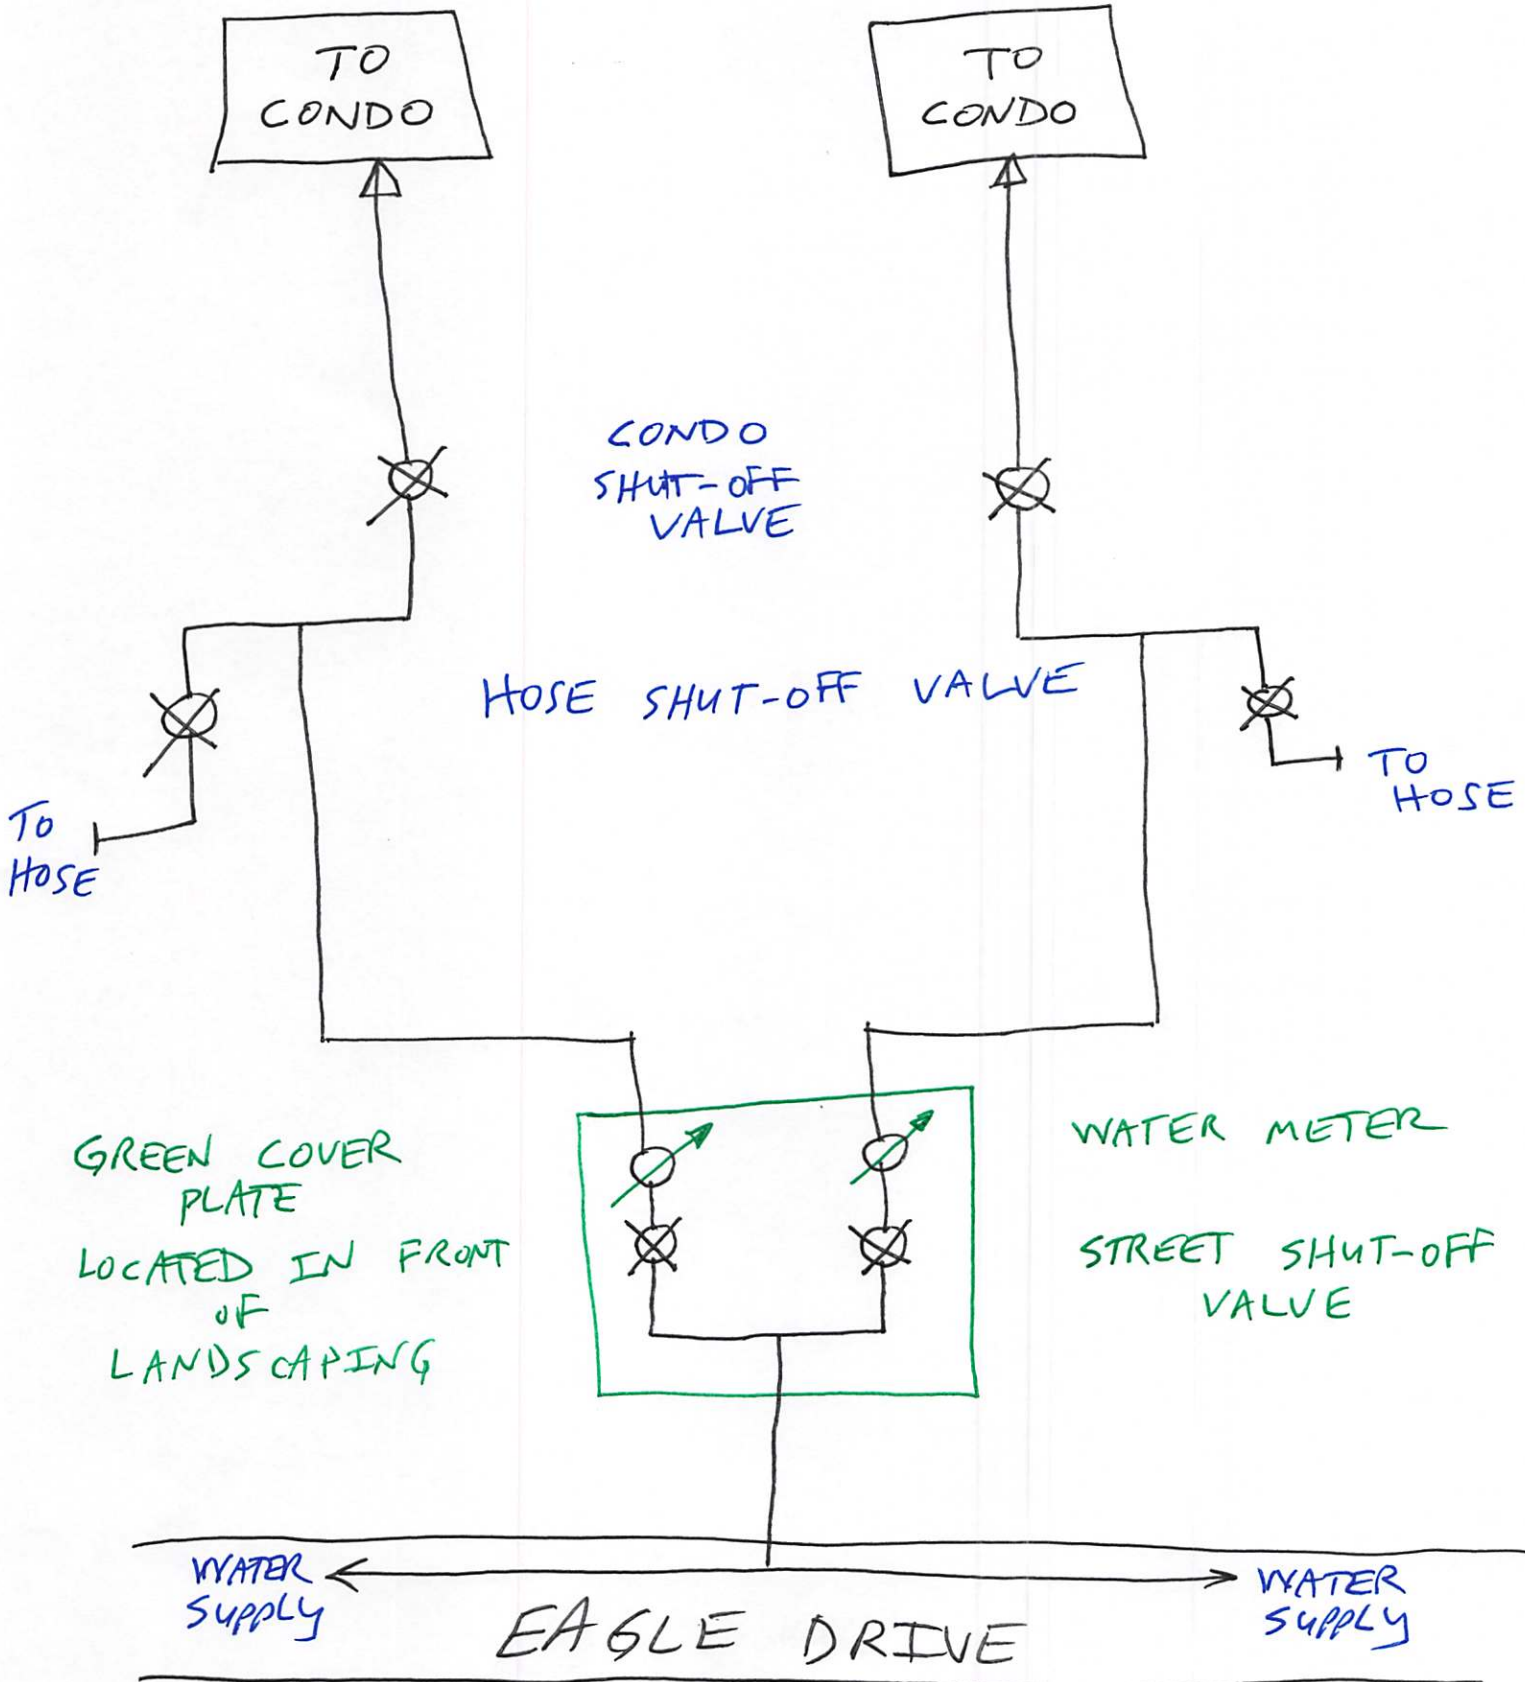 TO
CONDO
TO
CONDO
CONDO
SHUT-OFF
VALVE
HOSE SHUT-OFF VALVE
TO
HOSE
TO
HOSE
GREEN COVER
PLATE
LOCATED IN FRONT
OF
LANDSCAPING
WATER METER
STREET SHUT-OFF
VALVE
WATER
SUPPLY
WATER
SUPPLY
EAGLE DRIVE